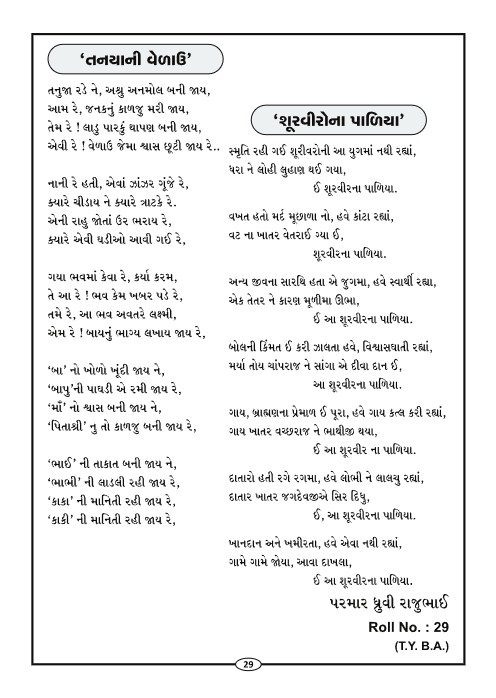 ‘તનયાની વેળાઉ’
તનુજા રડે ને, અશ્રુ અનમોલ બની જાય,
આમ રે, જનકનું કાળજુ મરી જાય,
તેમ રે ! લાડુ પારકું થાપણ બની જાય,
એવી રે ! વેળાઉ જેમા શ્વાસ છૂટી જાય રે..
નાની રે હતી, એવાં ઝાંઝર ગૂંજે રે,
ક્યારે ચીડાય ને ક્યારે ત્રાટકે રે.
એની રાહુ જોતાં ઉર ભરાય રે,
ક્યારે એવી ઘડીઓ આવી ગઈ રે,
ગયા ભવમાં કેવા રે, કર્યા કરમ,
તે આ રે ! ભવ કેમ ખબર પડે રે,
તમે રે, આ ભવ અવતરે લક્ષ્મી,
એમ રે ! બાયનું ભાગ્ય લખાય જાય રે,
‘બા’ નો ખોળો ખૂંદી જાય ને,
‘બાપુ’ની પાઘડી એ રમી જાય રે,
‘માઁ’ નો શ્વાસ બની જાય ને,
‘પિતાશ્રી’ નુ તો કાળજુ બની જાય રે,
‘ભાઈ’ ની તાકાત બની જાય ને,
‘ભાભી’ ની લાડલી રહી જાય રે,
‘કાકા’ ની માનિતી રહી જાય રે,
‘કાકી’ ની માનિતી રહી જાય રે,
‘શૂરવીરોના પાળિયા’
સ્મૃતિ રહી ગઈ શૂરીવરોની આ યુગમાં નથી રહ્યાં,
ધરા ને લોહી લુહાણ થઈ ગયા,
ઈ શૂરવીરના પાળિયા.
વખત હતો મર્દ મૂછાળા નો, હવે કાંટા રહ્યાં,
વટ ના ખાતર વેતરાઈ ગ્યા ઈ,
શૂરવીરના પાળિયા.
અન્ય જીવના સારથિ હતા એ જુગમા, હવે સ્વાર્થી રહ્યા,
એક તેતર ને કારણ મૂળીમા ઊભા,
ઈ આ શૂરવીરના પાળિયા.
બોલની કિંમત ઈ કરી ઝાલતા હવે, વિશ્વાસઘાતી રહ્યાં,
મર્યા તોય ચાંપરાજ ને સાંગા એ દીવા દાન ઈ,
આ શૂરવીરના પાળિયા.
ગાય, બ્રાહ્મણના પ્રેમાળ ઈ પૂરા, હવે ગાય કત્લ કરી રહ્યાં,
ગાય ખાતર વચ્છરાજ ને ભાથીજી થયા,
ઈ આ શૂરવીર ના પાળિયા.
દાતારો હતી રગે રગમા, હવે લોભી ને લાલચુ રહ્યાં,
દાતાર ખાતર જગદેવજીએ સિર દિધુ,
ઈ, આ શૂરવીરના પાળિયા.
ખાનદાન અને ખમીરતા, હવે એવા નથી રહ્યાં,
ગામે ગામે જોયા, આવા દાખલા,
ઈ આ શૂરવીરના પાળિયા.
પરમાર ધ્રુવી રાજુભાઈ
Roll No. : 29
(T.Y. B.A.)
29